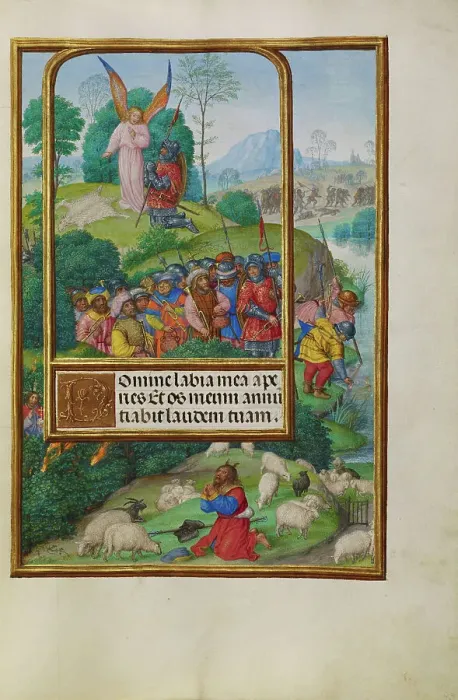 Domine labia mea ape
ries Et os meum annu
tiabit laudem tuam.